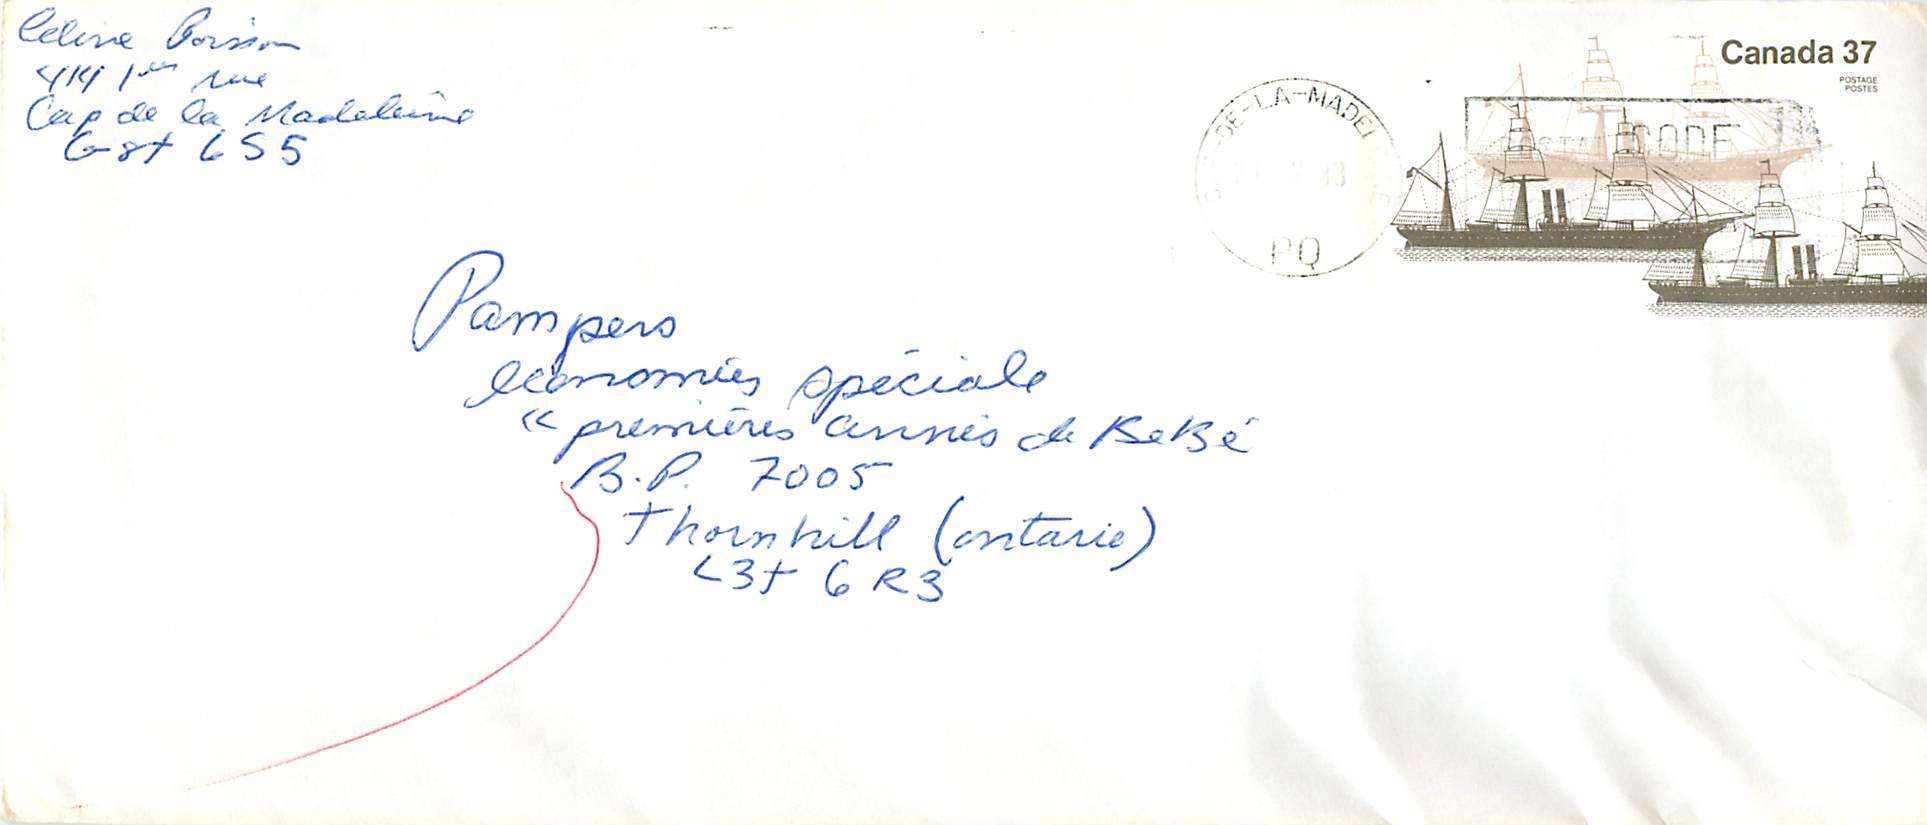 Céline Poisson
414 1ère rue
Cap de la Madeleine
G8t 6S5
Canada 37
POSTAGE
POSTES
DE-LA-MADEL
PQ
POSTAL CODE
Pampers
économies spéciale
"premières années de BeBé
B.P. 7005
Thornhill (ontario)
L3t 6R3